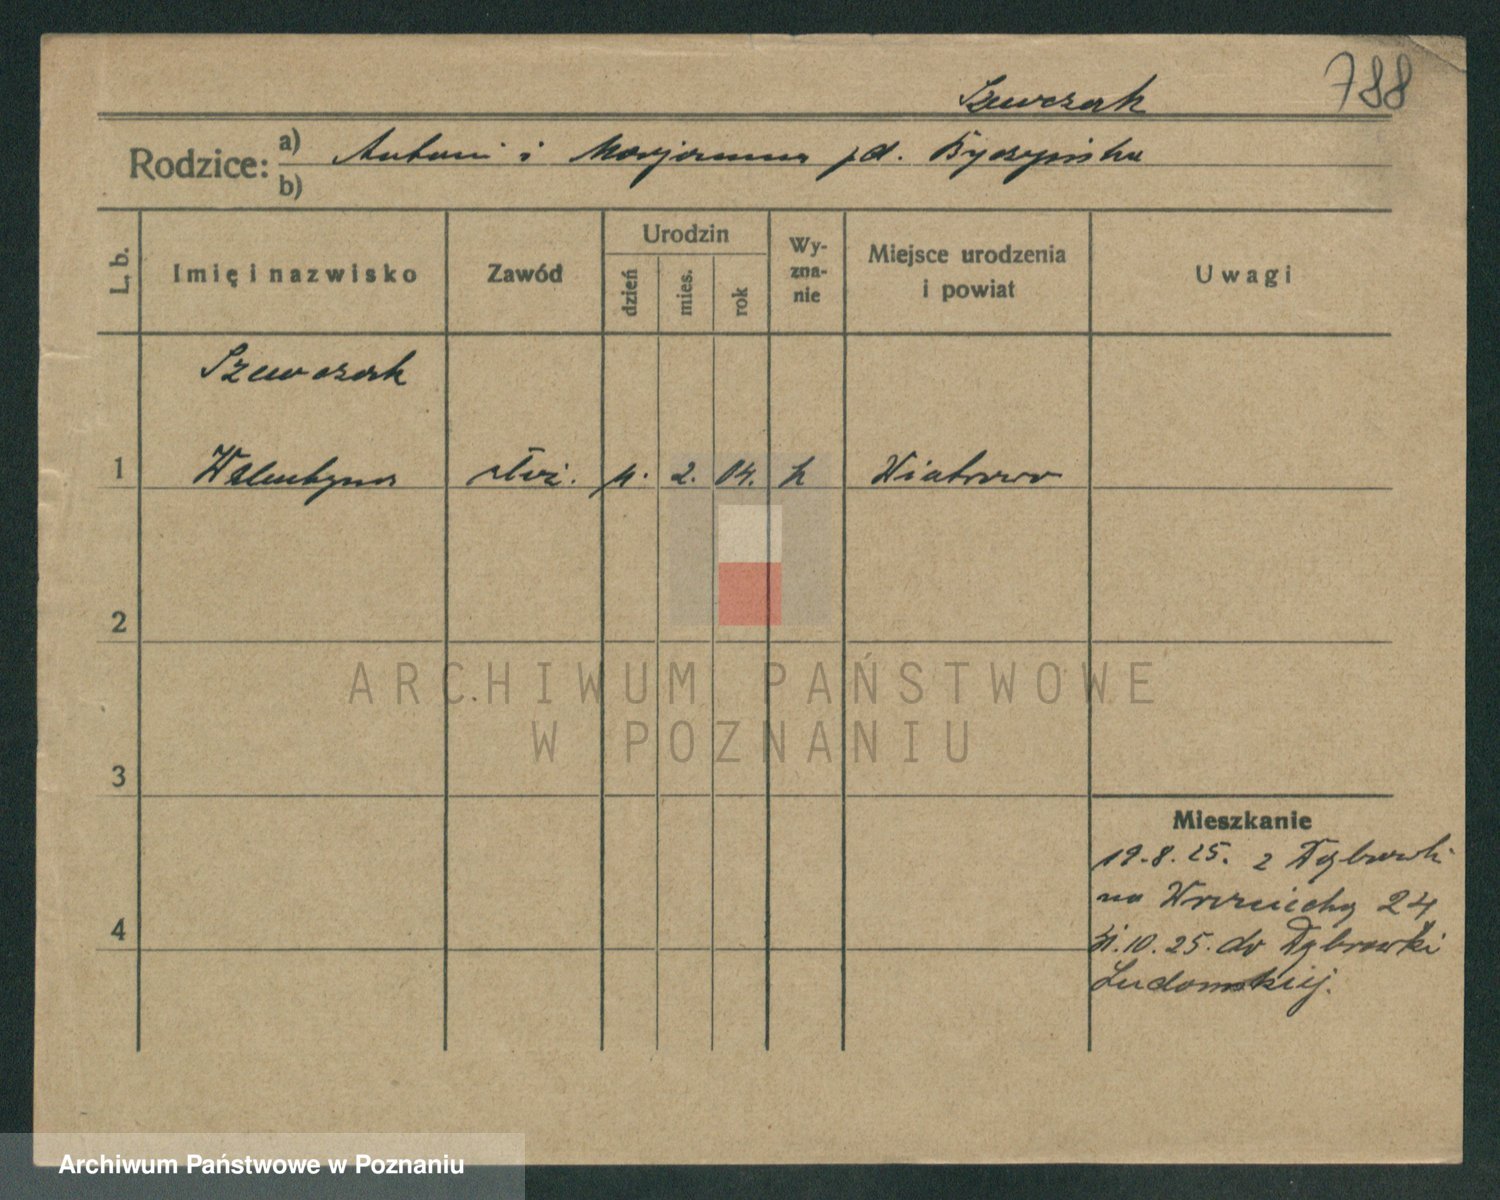 788
Szewczak
Rodzice: a) Antoni i Marjanna
b)
L. b.
Imię i nazwisko
Zawód
Urodzin
dzień
mies.
rok
Wy-
zna-
nie
Miejsce urodzenia
i powiat
Uwagi
Szewczak
1 Walentyna służ. 2. 04. k Wiatrowo
2
3
4
Mieszkanie
19.8.25. z Dąbrówki
na 24
10.25. do Dąbrówki
Ludomskiej.
ARCHIWUM PAŃSTWOWE
W POZNANIU
Archiwum Państwowe w Poznaniu